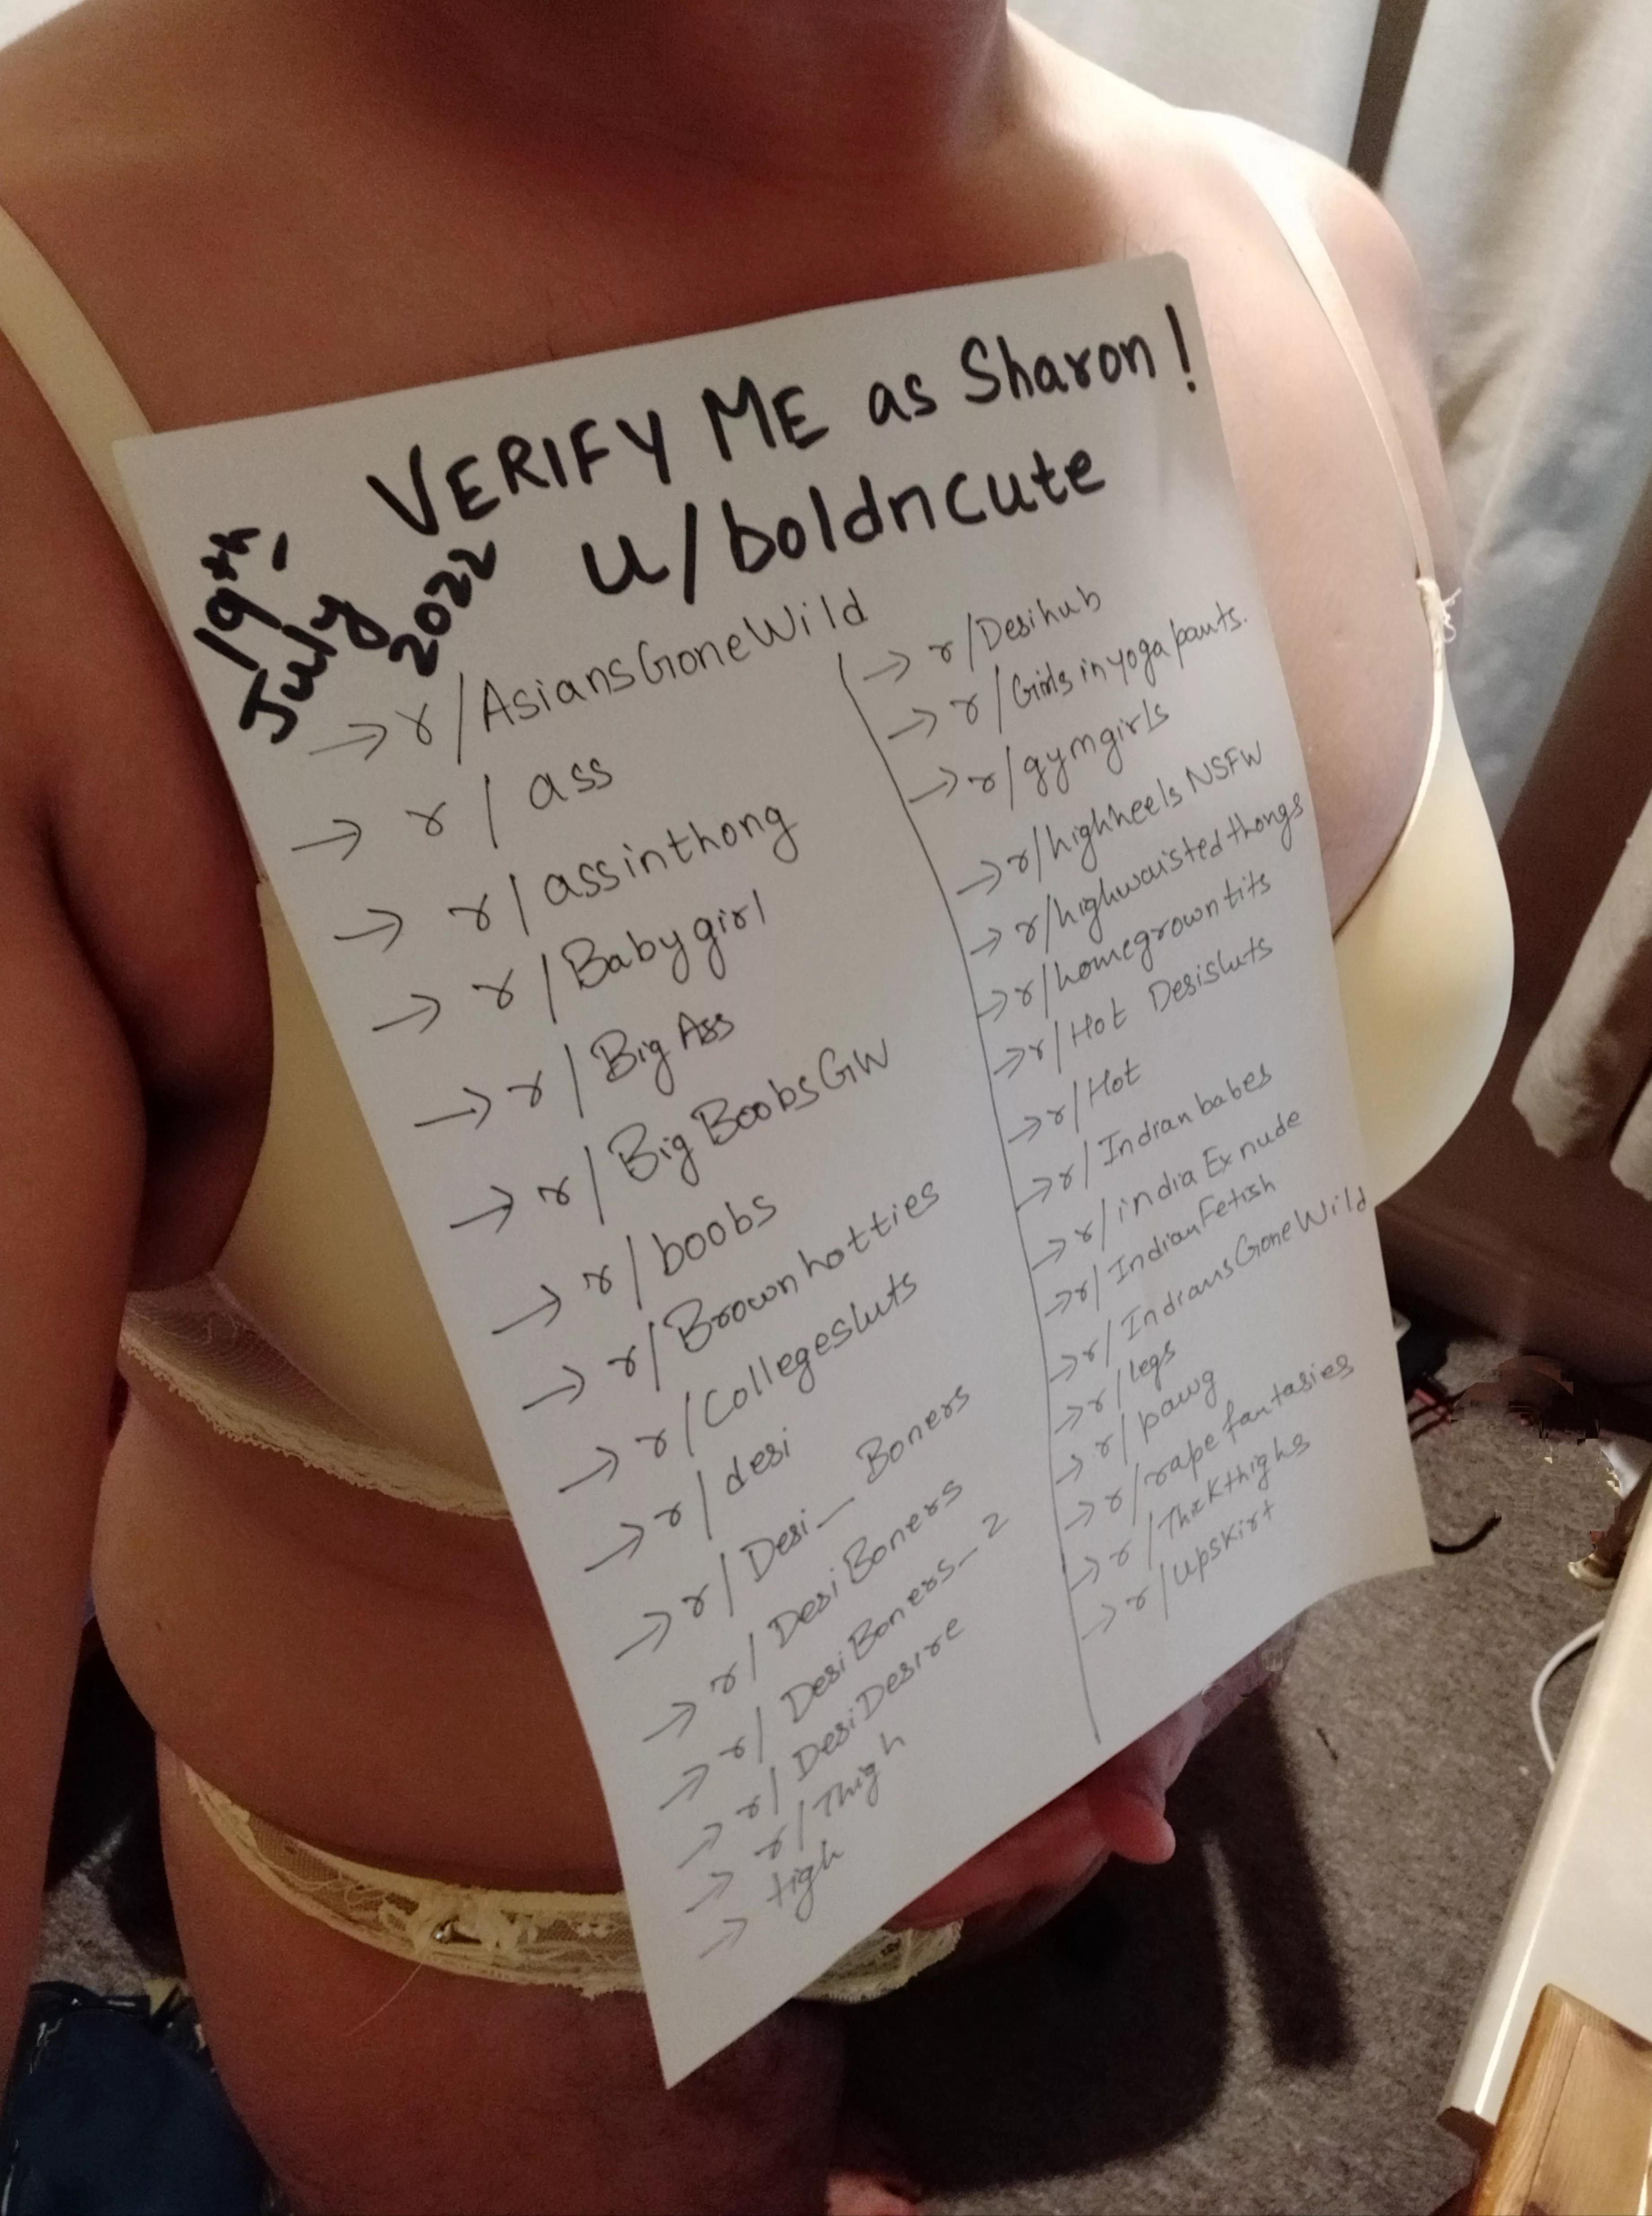 VERIFY ME as Sharon!
u/boldncute
19th,
July
2022
→ r/AsiansGoneWild
→ r/ass
→ r/assinthong
→ r/Babygirl
→ r/Big Ass
→ r/Big BoobsGW
→ r/boobs
→ r/Brownhotties
→ r/Collegesluts
→ r/desi
→ r/Desi_Boners
→ r/DesiBoners
→ r/DesiBoners_2
→ r/DesiDesire
→ r/Thigh
→ tigh
→ r/Desihub
→ r/Girls in yoga pants.
→ r/gymgirls
→ r/highheels NSFW
→ r/highwaisted thongs
→ r/homegrown tits
→ r/Hot Desisluts
→ r/Hot
→ r/Indian babes
→ r/india Ex nude
→ r/IndianFetish
→ r/IndiansGoneWild
→ r/legs
→ r/pawg
→ r/rape fantasies
→ r/Thickthighs
→ r/upskirt